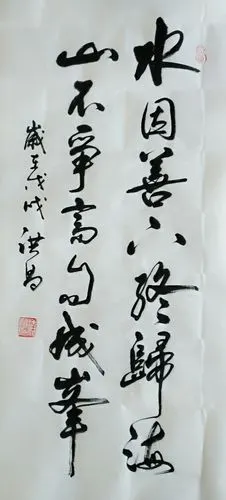 水因善下終歸海
山不爭高自成峯
歲在戊戌洪昌